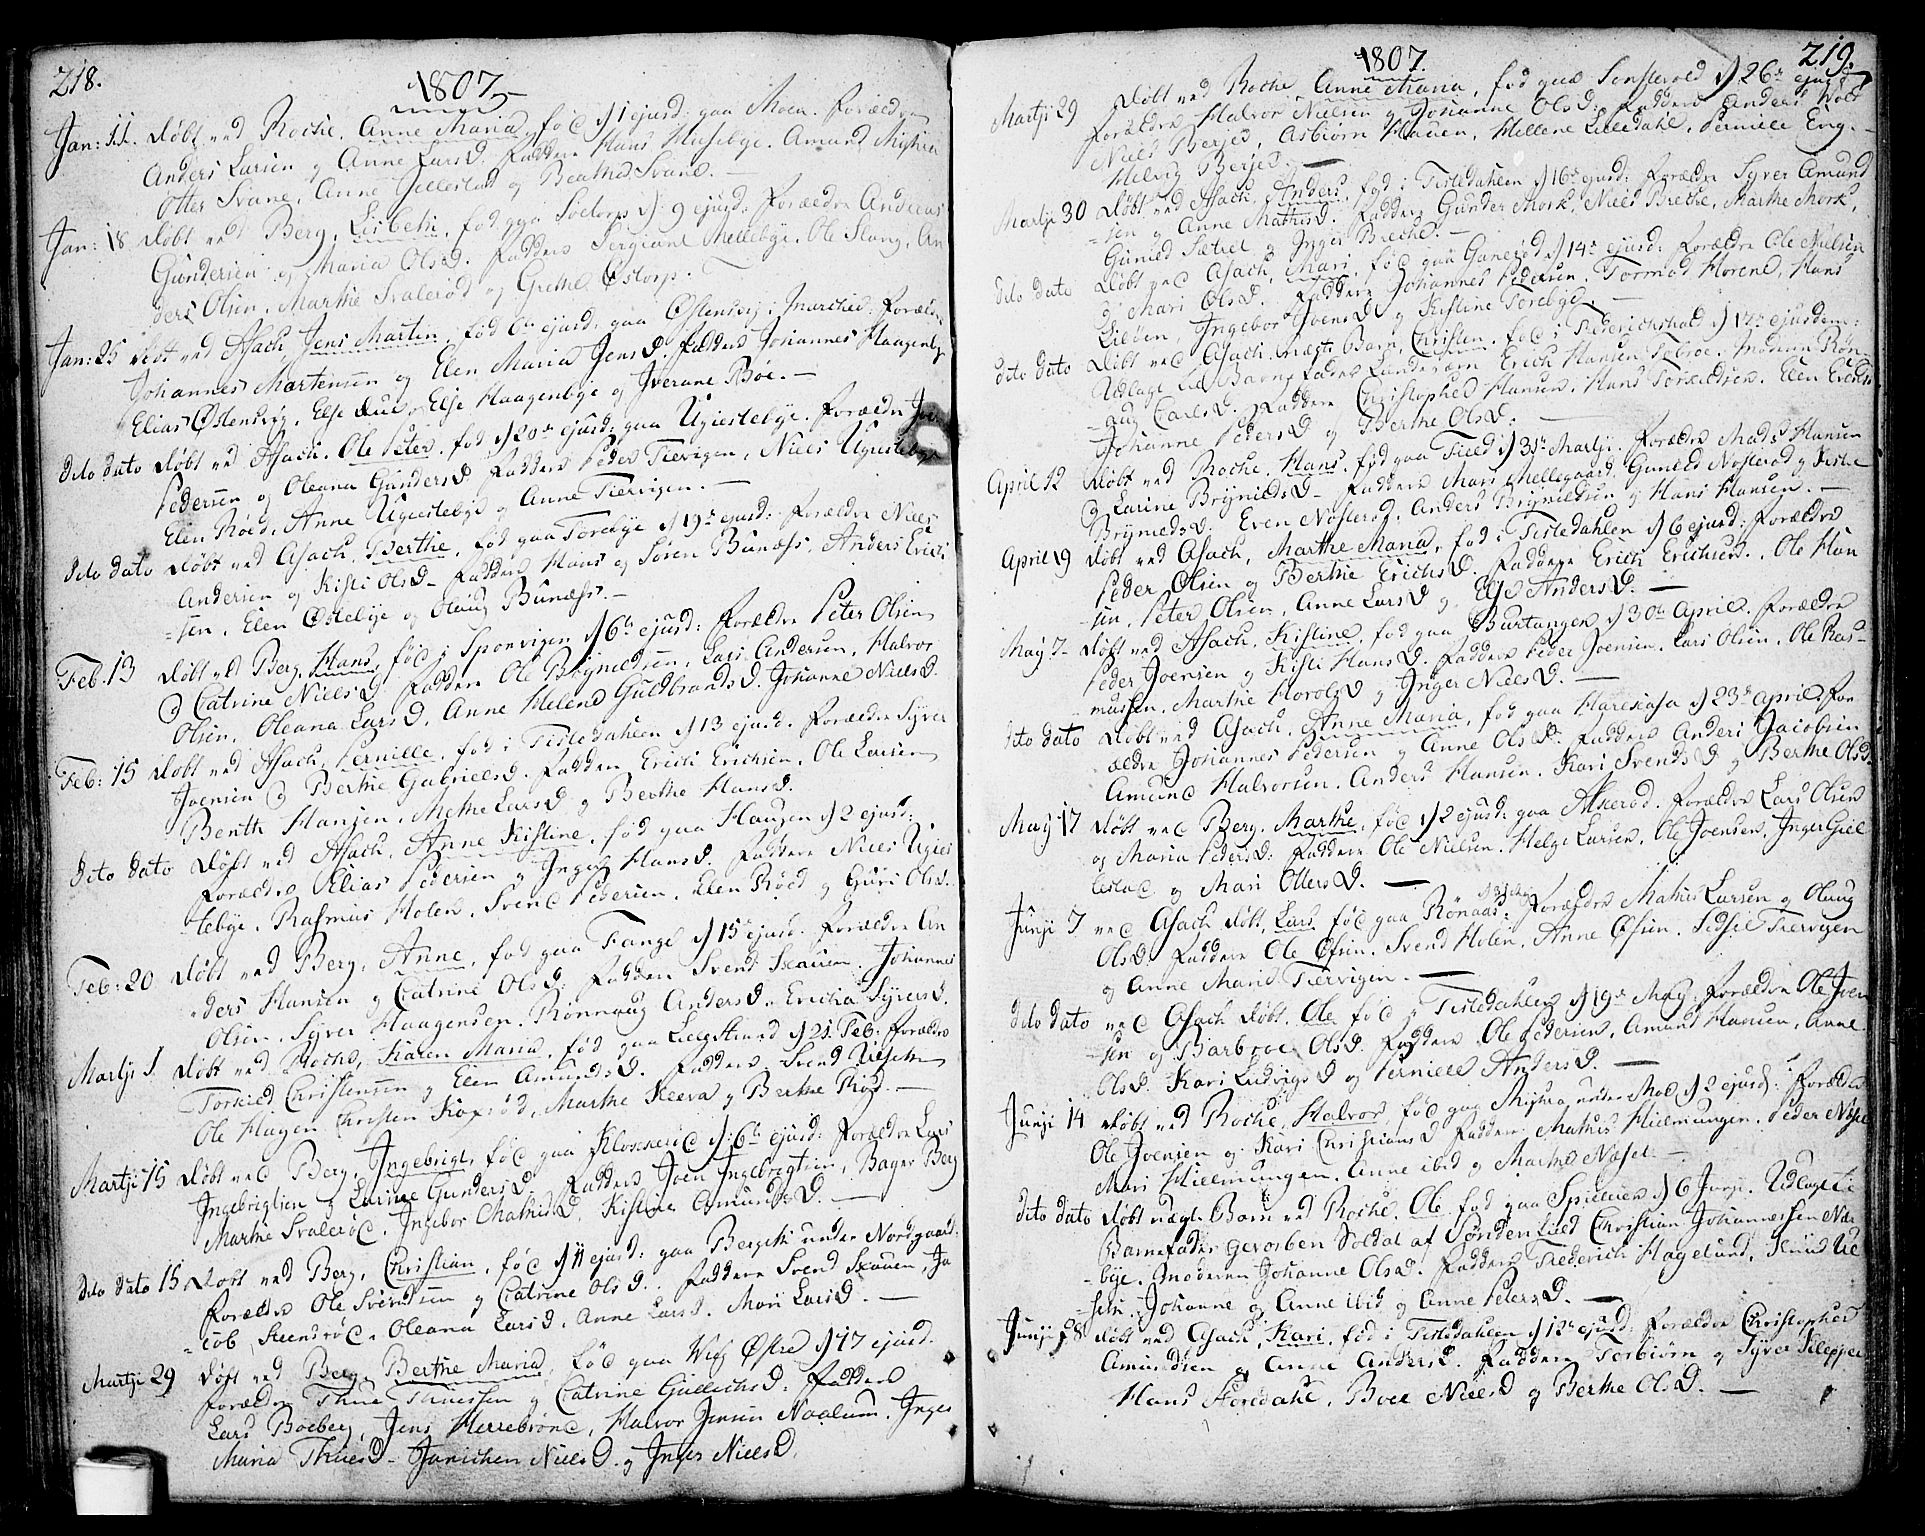 218.
1807
Jan: 11. Døbt ved Rocke. Anne Maria, fød d 1 ejusd: paa Moen. Forældre
Anders Larsen og Anne Larsd. Faddere Hans Huseby. Amund
Otter Svane, Anne Jellestad og Beathe Svane.
Jan: 18. Døbt ved Berg, Lisbeth, fød paa Sœtorp d: 9 ejusd: Forældre Andreas
Gundersen og Maria Olsd. Faddere Sergiant Mellebye. Ole Slang. An
ders Olsen, Marthe Svalerød og Grethe Østorp.
Jan: 25 Døbt ved Asach Jens Marten, fød 6te ejusd: paa Østensvig i Marched: Forældre
Johannes Martensen og Elen Maria Jensd. Faddere Johannes Haagenbye
Elias Østensvig, Else Rue, Else Haagenbye og Iverane Bøe.
dito dato Døbt ved Asach. Ole Peter. fød d 20de ejusd: paa Ugiestebye. Forældre Joen
Pedersen og Oleana Gundersd Faddere Peder Tiervigen, Niels Ugiestebye
Elen Røed, Anne Ugiestebye og Anne Tiervigen.
dito dato Døbt ved Asach, Berthe, fød paa Torebye d 19de ejusd: Forældre Niels
Andersen og Kisti Olsd. Faddere Hans og Søren Bunæss. Anders Erich
-sen, Elen Østebye og Olaug Bunæss.
Feb. 13 Døbt ved Berg, Hans, fød i Sponvigen d 6te ejusd: Forældre Peter Olsen
og Catrine Nielsd. Faddere Ole Brynildsen, Lars Andersen, Halvor
Olsen, Oleana Larsd, Anne Helene Guldbrandsd. Johanne Nielsd.
Feb: 15 Døbt ved Asach, Pernille, fød i Tistedahlen d 13 ejusd. Forældre Syver
Joensen og Berthe Gabrielsd. Faddere Erich Erichsen, Ole Larsen
Benth Hansen, Methe Larsd og Berthe Hansd.
dito dato Døbt ved Asach, Anne Kistine, fød paa Haugen d 2 ejusd:
Forældre Elias Pedersen og Inger Hansd. Faddere Niels Ugies
tebye, Rasmus Holen, Svend Pedersen, Elen Røed og Guri Olsd.
Feb: 20 Døbt ved Berg, Anne, fød paa Tange d 15 ejusd. Forældre An
ders Hansen og Catrine Olsd. Faddere Svend Skauen. Johannes
Olsen, Syver Haagensen, Rønnaug Andersd. Ericha Syversd.
Martji 1. Døbt ved Rocke, Karen Maria, fød paa d 21 Feb: Forældre
Torkild Christensen og Elen Amundsd. Faddere Svend
Ole Hagen Christen Korsrød, Marthe Keeva og Berthe Riød.
Martji 15 Døbt ved Berg, Ingebrigt, fød paa d. 6te ejusd: Forældre Lars
Ingebrigtsen og Larine Gundersd. Faddere Joen Ingebrigtsen, Bager Berg
Marthe Svalerød, Ingebor Mathisd, Kistine Amundsd.
dito dato 15. Døbt ved Berg, Christian, fød d 11 ejusd: paa under Nordgaard:
Forældre Ole Svendsen og Catrine Olsd. Faddere Svend Skauen, Ja
-cob Steensrød. Oleana Larsd, Anne Larsd. Mari Larsd.
Martji 29 Døbt ved Berg, Berthe Maria, fød paa Østre d 17 ejusd.
Forældre Thue Thuessen og Catrine Gullichsd. Faddere
Lars Boeberg, Jens Herrebrønd, Halvor Jensen Naalum, Inger
Maria Thuesd. Janichen Nielsd. og Inger Nielsd
219.
1807.
Martji 29 Døbt ved Rocke, Anne Maria, fød paa d 26te ejusd
Forældre Halvor Nielsen og Johanne Olsd: Faddere Anders
Niels Berjes, Asbiørn Hauen, Hellene Lilledahl. Pernille Eng.
Helvig Berjes.
Martji 30 Døbt ved Asach, Anders, fød i Tistedahlen d 16te ejusd: Forældre Syver Amund
-sen og Anne Mathisd. Faddere Gunder Mork, Niels Breche, Marthe Mork,
Gunild Sætret og Inger Breche.
dito dato Døbt ved Asach, Mari, fød paa Ganerød d 14de ejusd: Forældre Ole Nielsen
og Mari Olsd. Faddere Johannes Pedersen, Tormod Horene, Hans
Liløen, Ingebor Joensd og Kistine Torebye.
dito dato Døbt ved Asach uægte Barn, Christen, fød i Friderichshald d 17de ejusdem:
Udlagt til Barnefader Landværn Erich Hansen Tobroe. Moderen Røn-
-aug Carlsd. Faddere Christopher Hansen. Hans Torkildsen. Elen Erichsd
Johanne Pedersd og Berthe Olsd.
April 12 Døbt ved Rocke. Hans, fød paa Field d 31te Martji. Forældre Mads Hansen
og Larine Brynildsd. Faddere Mari Mellegaard, Gunild Nøsterød og Kisti
Brynildsd. Even Nøsterød, Anders Brynildsen og Hans Hansen.
April 19 Døbt ved Asach, Marthe Maria, fød i Tistedahlen d 6 ejusd: Forældre
Peder Olsen og Berthe Erichsd. Faddere Erich Erichsen, Ole Han
-sen, Peter Olsen, Anne Larsd og Else Andersd.
Maij 7 Døbt ved Asach. Kistine, fød paa Burtangen d 30te April. Forældre
Peder Joensen og Kisti Hansd. Faddere Peder Joensen. Lars Olsen, Ole Ras-
mussen, Marthe Harolsd og Inger Nielsd.
dito dato Døbt ved Asach, Anne Maria, fød paa Harekasa d 23de April For
ældre Johannes Pedersen og Anne Olsd: Faddere Anders Jacobsen
Amund Halvorsen. Anders Hansen. Kari Svendsd og Berthe Olsd.
Maij 17 Døbt ved Berg. Marthe, fød d 2 ejusd: paa Askerød. Forældre Lars Olsen
og Maria Pedersd: Faddere Ole Nielsen. Helge Larsen, Ole Joensen, Inger Giel
lestad og Mari Ottersd.
Junji 7 ved Asach Døbt, Lars fød paa Rønaas: Forældre Mathis Larsen og Olaug
Olsd. Faddere Ole Øsen. Svend Holen. Anne Øsen, Sidsel Tiervigen
og Anne Maria Tiervigen.
dito dato ved Asach Døbt, Ole fød i Tistedahlen d 19de Maij: Forældre Ole Iver
-sen og Barbroe Olsd. Faddere Ole Pedersen, Amund Hansen, Anne
Olsd. Kari Ludvigsd og Pernille Andersd.
Junji 14 Døbt ved Rocke, Halvor, fød paa under Moe d 2 ejusd: Forældre
Ole Joensen og Kari Christiansd Faddere Mathis Hielmungen. Peder Næsset
Mari Hielmungen. Anne ibid og Marthe Næset.
dito dato Døbt uægte Barn ved Rocke. Ole, fød paa d 6 Junji. Udlagt til
Barnefader Gevorben Soldat af Christian Johannessen Nær
-bye. Moderen Johanne Olsd. Faddere Friederich Hagelund, Knud
-sen, Johanne og Anne ibid og Anne Petersd.
Junji 28 Døbt ved Asach, Kari, fød i Tistedahlen d 12te ejusd: Forældre Christopher
Amundsen og Anne Andersd. Faddere Torbiørn og Syver Kleppe
Hans Floredahl, Boel Nielsd og Berthe Olsd.